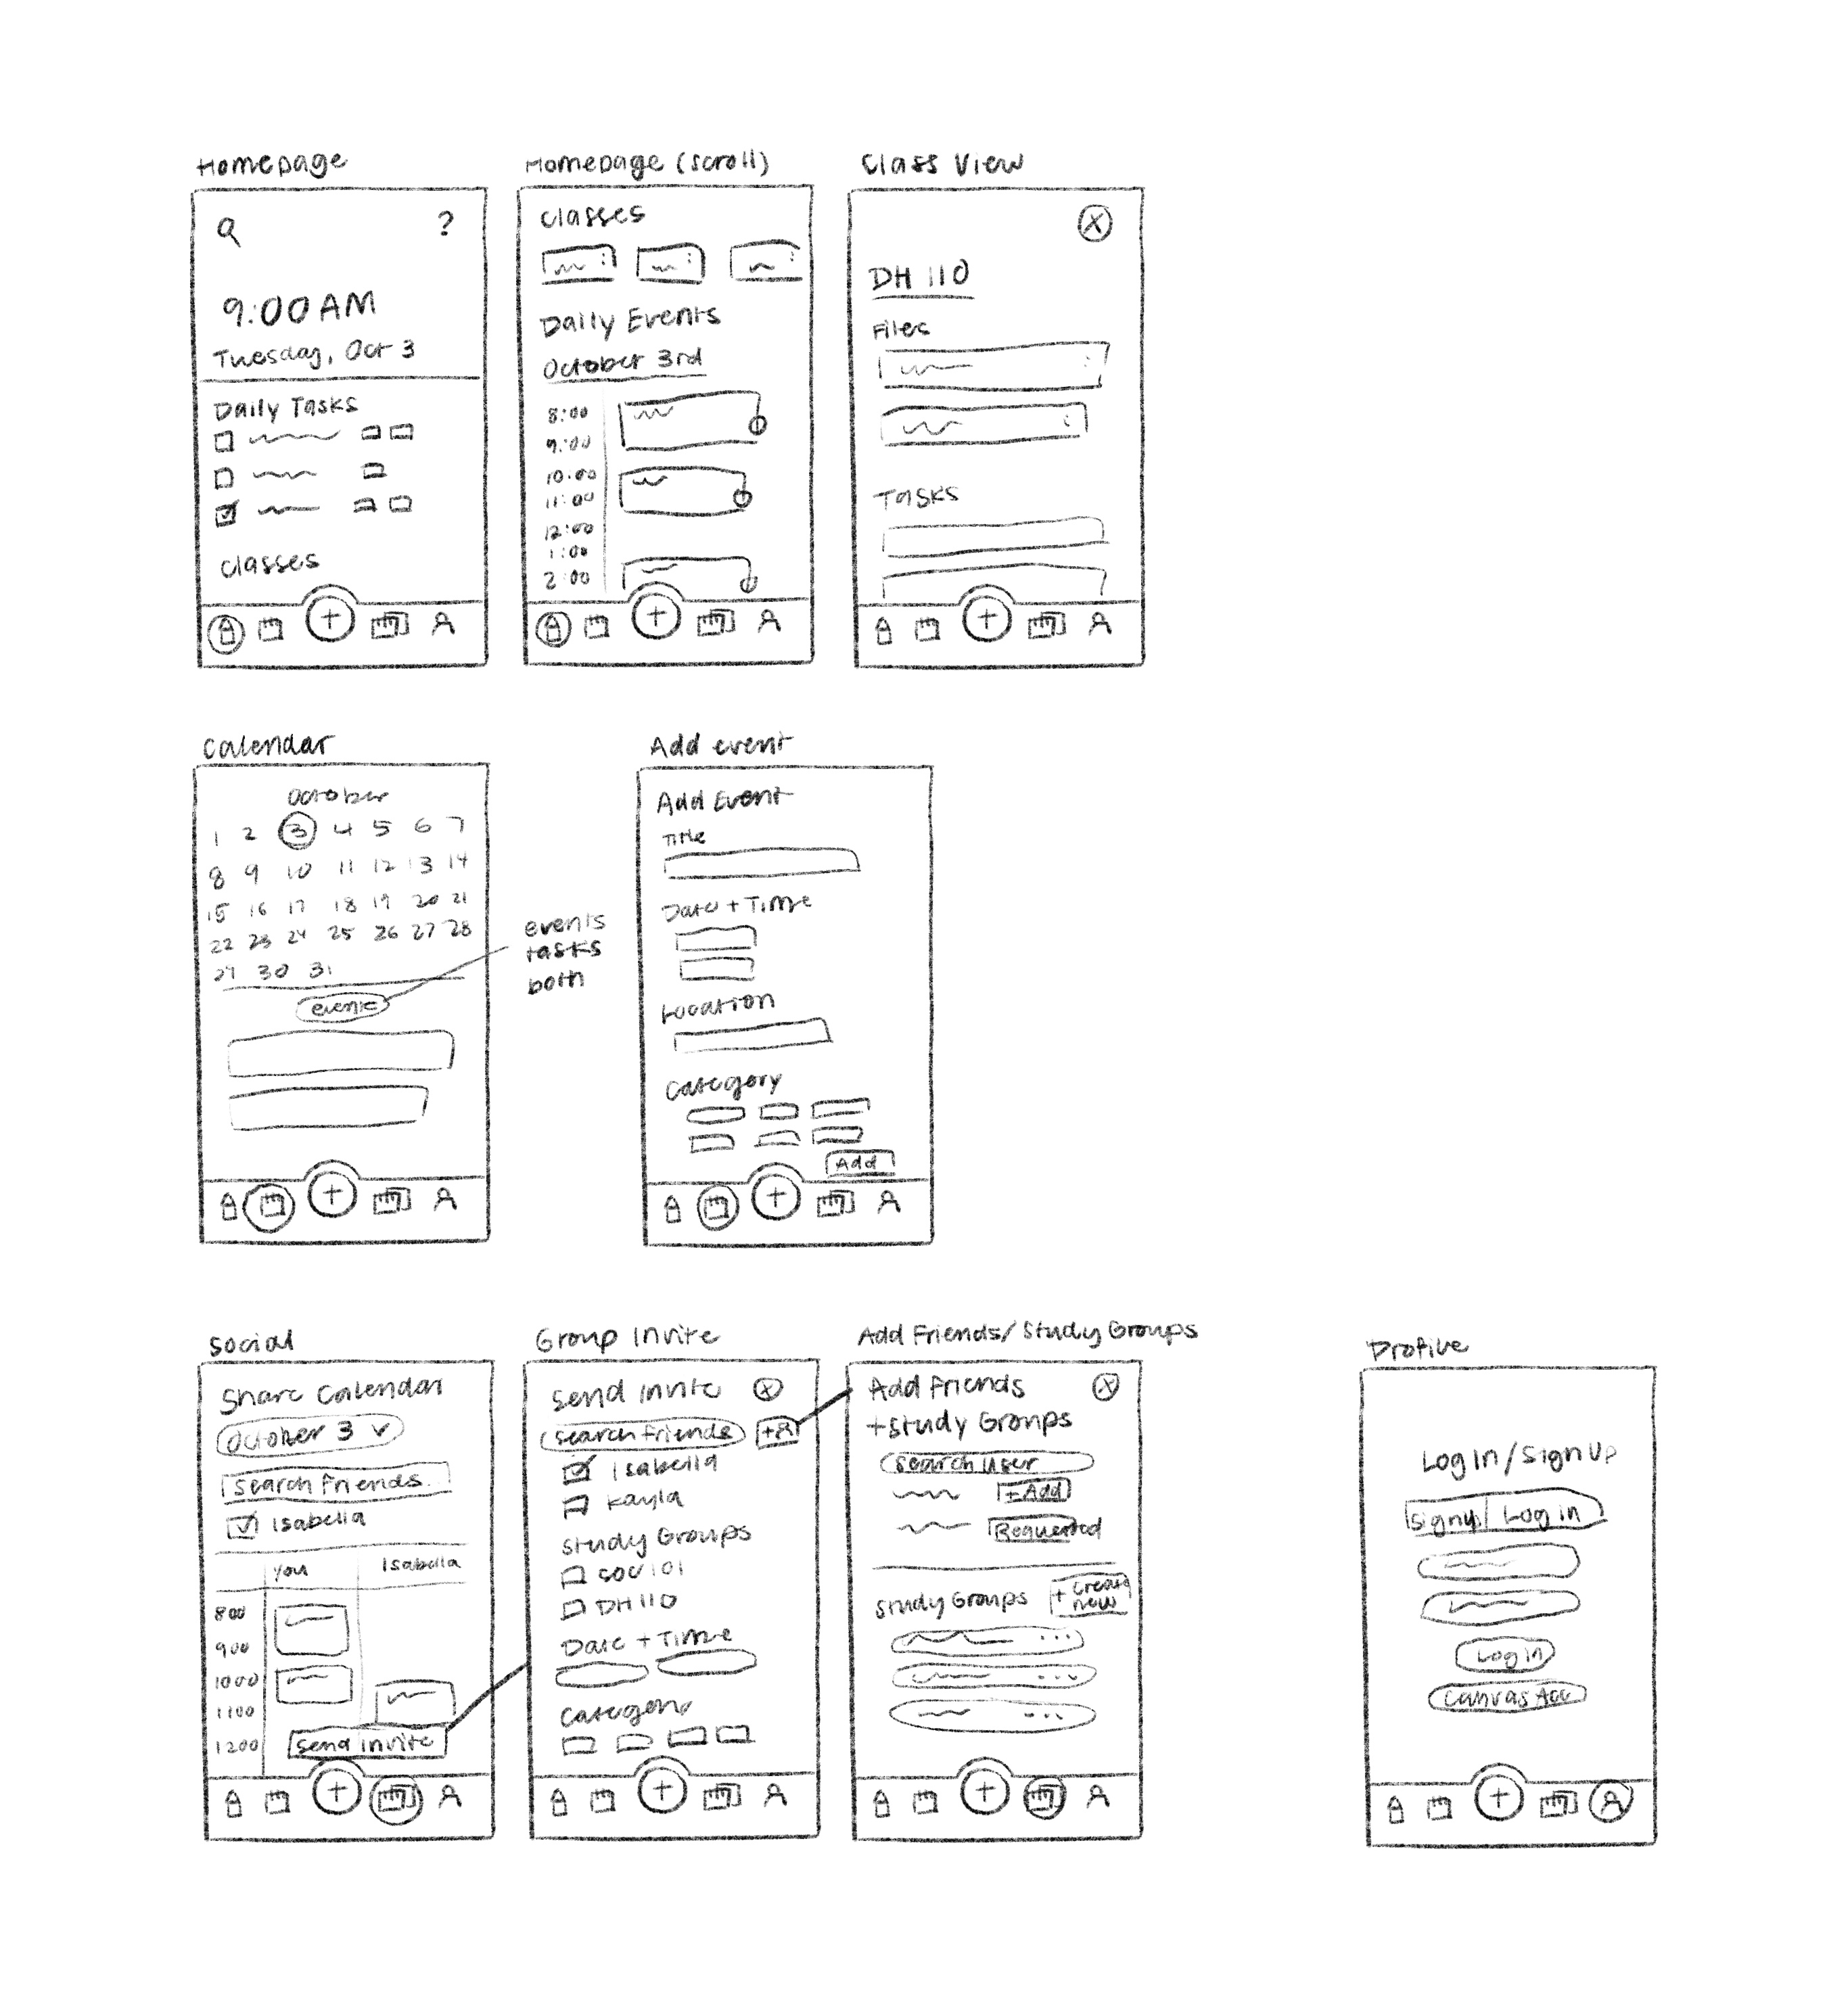 Homepage
?
9:00 AM
Tuesday, Oct 3
Daily Tasks
Classes
+
Homepage (scroll)
Classes
Daily Events
October 3rd
8:00
9:00
10:00
11:00
12:00
1:00
2:00
+
Class View
X
DH 110
Files
Tasks
+
Calendar
October
1 2 3 4 5 6 7
8 9 10 11 12 13 14
15 16 17 18 19 20 21
22 23 24 25 26 27 28
29 30 31
events
events
tasks
both
+
Add event
Add Event
Title
Date + Time
Location
Category
Add
+
Social
Share Calendar
October 3
Search Friends
Isabella
You Isabella
800
900
1000
1100
1200
Send invite
+
Group Invite
Send Invite X
Search friends +
Isabella
Kayla
Study Groups
SOC 101
DH 110
Date + Time
Category
+
Add Friends/Study Groups
Add Friends X
+Study Groups
Search User
+Add
Requested
Study Groups + Create
new
+
Profile
Log In/Sign Up
Sign up Log in
Log in
Canvas Acc
+